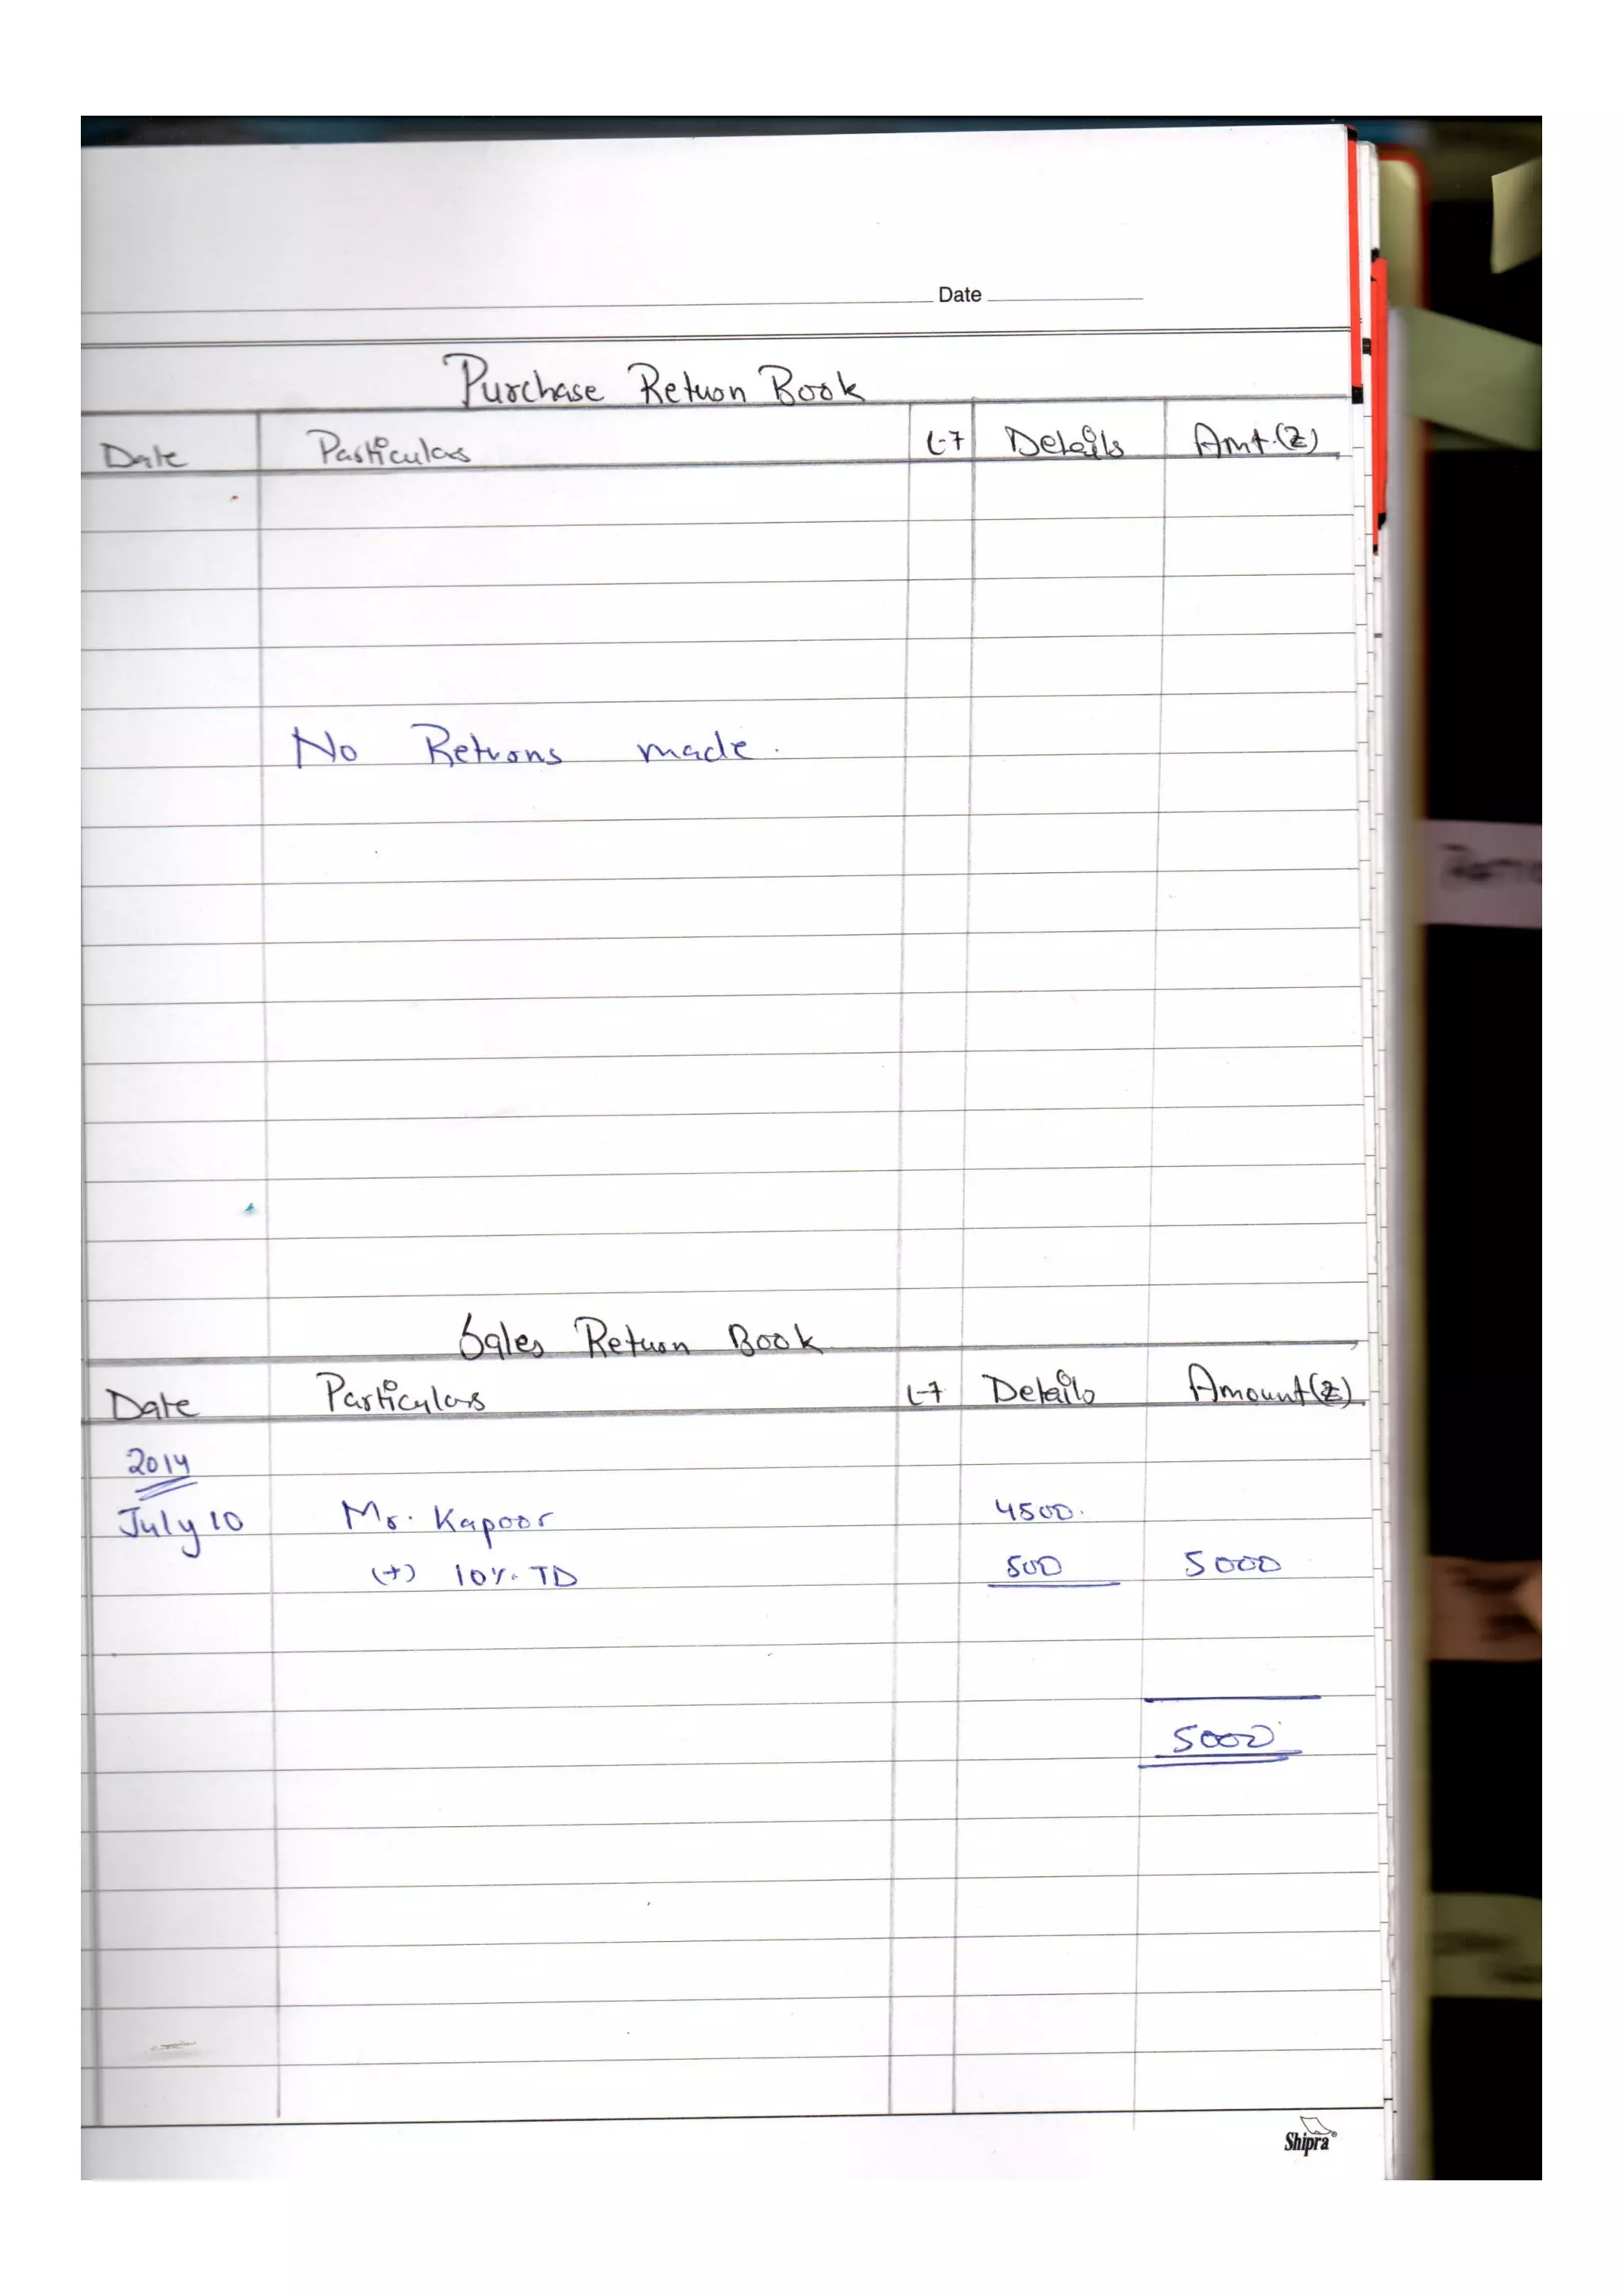 Date
Purchase Return Book
Date Particulars L.F Details Amt.(₹)
No Returns made.
Sales Return Book
Date Particulars L.F Details Amount(₹)
2014
July 10 Mr. Kapoor 4500.
(+) 10% TD 500 5000
5000
Shipra